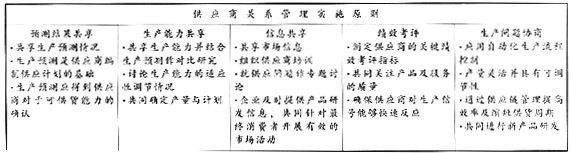 供应商关系管理实施原则
预测结果共享
·共享生产预测情况
·生产预测是供应商编
制供应计划的基础
·生产预测应得到供应
商对于可供货能力的
确认
生产能力共享
·共享生产能力并结合
生产预测作对比研究
·讨论生产能力的适应
性调节情况
·共同确定产量与计划
信息共享
·共享市场信息
·组织供应商培训
·就供应问题作专题讨
论
·企业及时提供产品研
发信息，共同针对最
终消费者开展有效的
市场活动
绩效考评
·制定供应商的关键绩
效考评指标
·共同关注产品及服务
的质量
·确保供应商对生产信
号能够快速反应
生产问题协商
·应用自动化生产流程
控制
·产量灵活并具有可调
节性
·通过供应链管理提高
效率及缩短供货周期
·共同进行新产品研发